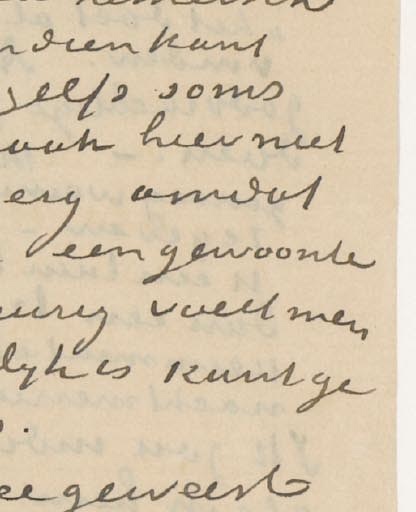 ndien kunt
zelfs soms
ook hier niet
erg omdat
een gewoonte
eurig voelt men
lijk is kunt ge
ee geweest